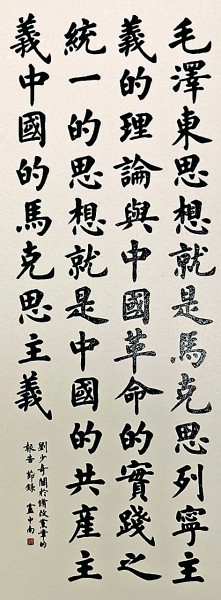 毛澤東思想就是馬克思列寧主
義的理論與中國革命的實踐之
統一的思想就是中國的共產主
義中國的馬克思主義
劉少奇關於修改黨章的
報告節錄 盧中南